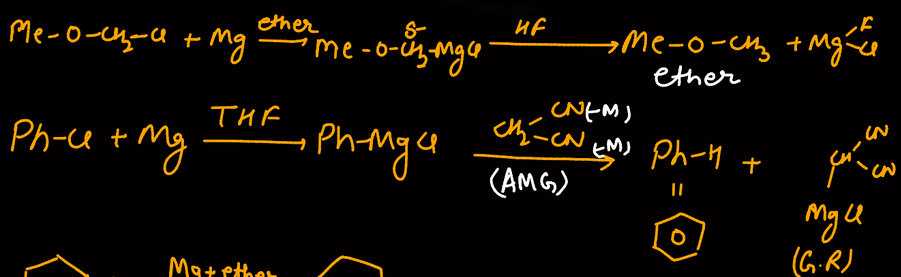 Me-O-CH2-Cl + Mg ether → Me-O-CH2-MgCl HF → Me-O-CH3 + Mg F Cl
δ-
ether
Ph-Cl + Mg THF → Ph-MgCl CH2 CN (-M) CN (-M) → Ph-H + CH CN CN
(AMG)
MgCl
(G.R)
Mg+ether